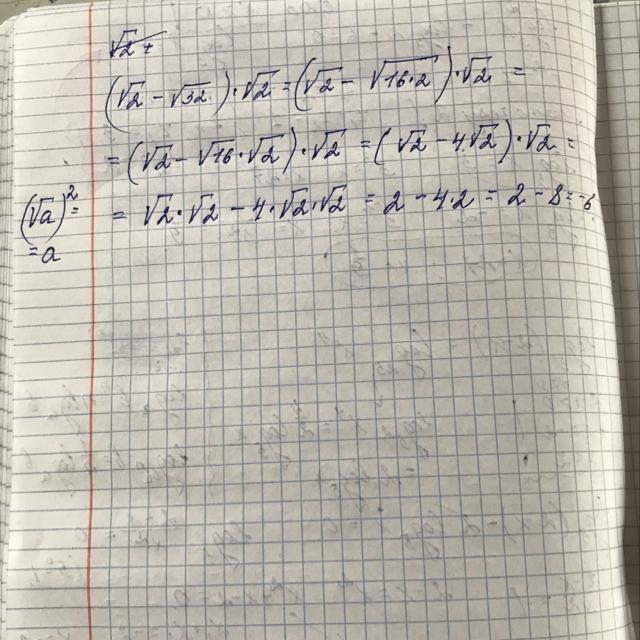 √2 +
(√2 - √32) · √2 = (√2 - √16·2) · √2 =
= (√2 - √16 · √2) · √2 = (√2 - 4√2) · √2 =
(√a)² = = √2 · √2 - 4 · √2 · √2 = 2 - 4·2 = 2 - 8 = -6
= a